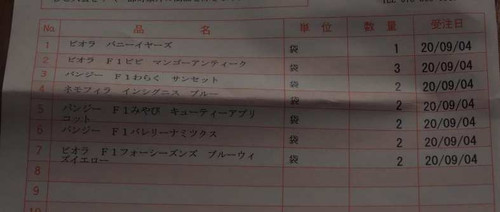 No. 品 名 単 位 数 量 受注日
1 ビオラ バニーイヤーズ 袋 1 20/09/04
2 ビオラ F1ビビ マンゴーアンティーク 袋 3 20/09/04
3 パンジー F1わらく サンセット 袋 2 20/09/04
4 ネモフィラ インシグニス ブルー 袋 2 20/09/04
5 パンジー F1みやび キューティーアプリ
コット 袋 2 20/09/04
6 パンジー F1バレリーナミックス 袋 2 20/09/04
7 ビオラ F1フォーシーズンズ ブルーウィ
ズイエロー 袋 2 20/09/04
8
9
10